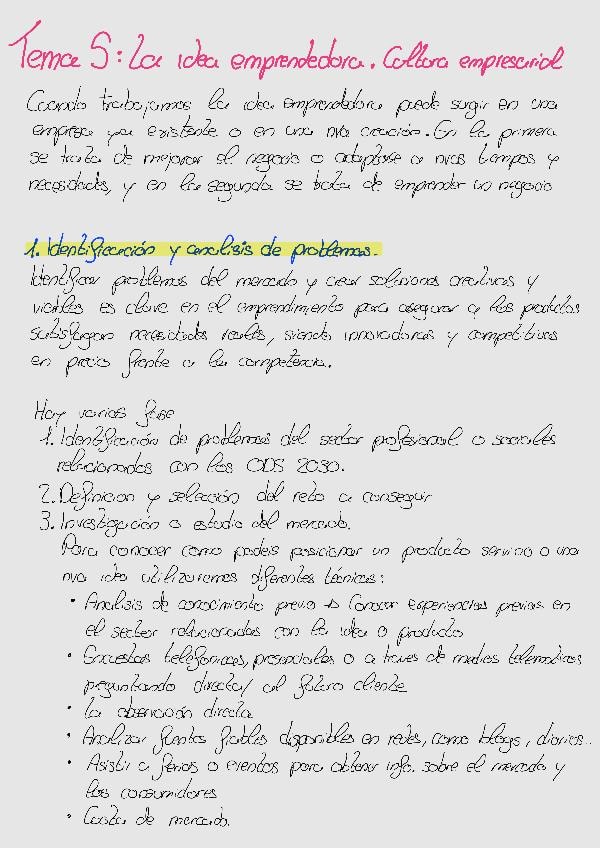 Tema 5: La idea emprendedora. Cultura empresarial
Cuando trabajamos la idea emprendedora puede surgir en una
empresa ya existente o en una nva creación. En la primera
se trata de mejorar el negocio o adaptarse a nvos tiempos y
necesidades, y en la segunda se trata de emprender un negocio
1. Identificación y analisis de problemas.
Identificar problemas del mercado y crear soluciones creativas y
viables es clave en el emprendimiento para asegurar q los productos
satisfagan necesidades reales, siendo innovadoras y competitivas
en precio frente a la competencia.
Hay varias fase
1. Identificación de problemas del sector profesional o sociales
relacionados con los ODS 2030.
2. Definicion y selección del reto a conseguir
3. Investigación o estudio del mercado.
Para conocer como podeis posicionar un producto servicio o una
nva idea utilizaremos diferentes técnicas:
• Analisis de conocimiento previo → Conocer experiencias previas en
el sector relacionadas con la idea o producto
• Encuestas telefonicas, presenciales o a traves de medios telematicos
preguntando directa/ al futuro cliente
• La observación directa
• Analizar fuentes fiables disponibles en redes, como blogs, diarios...
• Asistir a ferias o eventos para obtener info. sobre el mercado y
los consumidores
• Cuota de mercado.